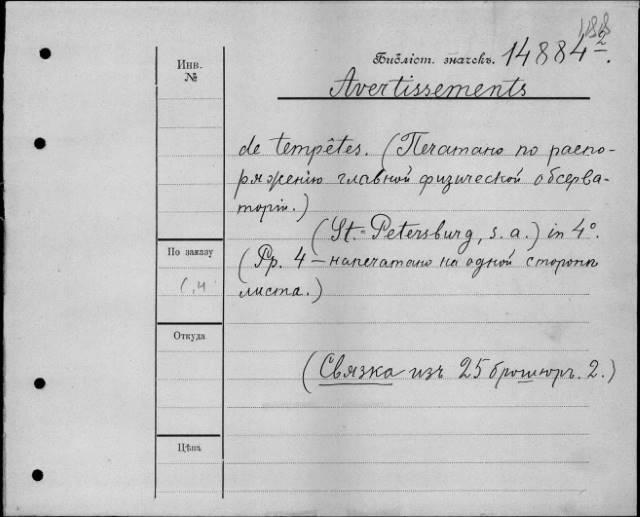 Инв.
№
Бібліот. значекъ. 14884².
Avertissements
de tempêtes. (Печатано по распо-
ряженію главной физической обсерва-
торіи.)
(St.-Petersburg, s. a.) in 4°.
По заказу
(Pp. 4 — напечатано на одной сторонѣ
листа.)
Откуда
(Связка изъ 25 брошюръ. 2.)
Цѣна